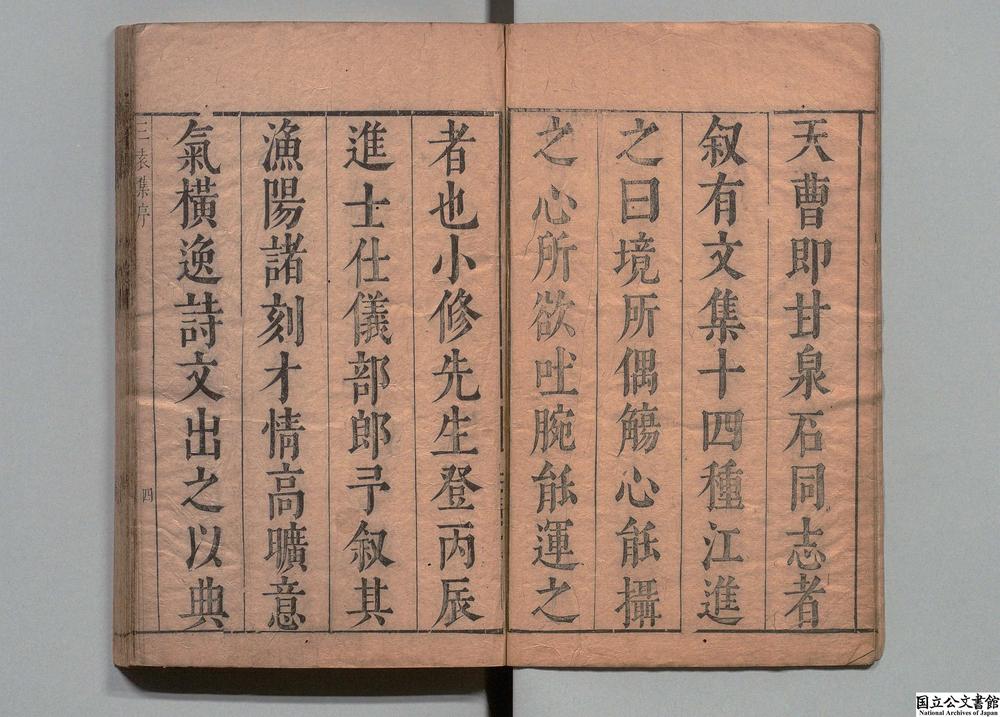 天曹即甘泉石同志者
叙有文集十四種江進
之曰境所偶觸心能攝
之心所欲吐腕能運之
者也小修先生登丙辰
進士仕儀部郎予叙其
漁陽諸刻才情高曠意
氣橫逸詩文出之以典
三袁集序
四
国立公文書館
National Archives of Japan